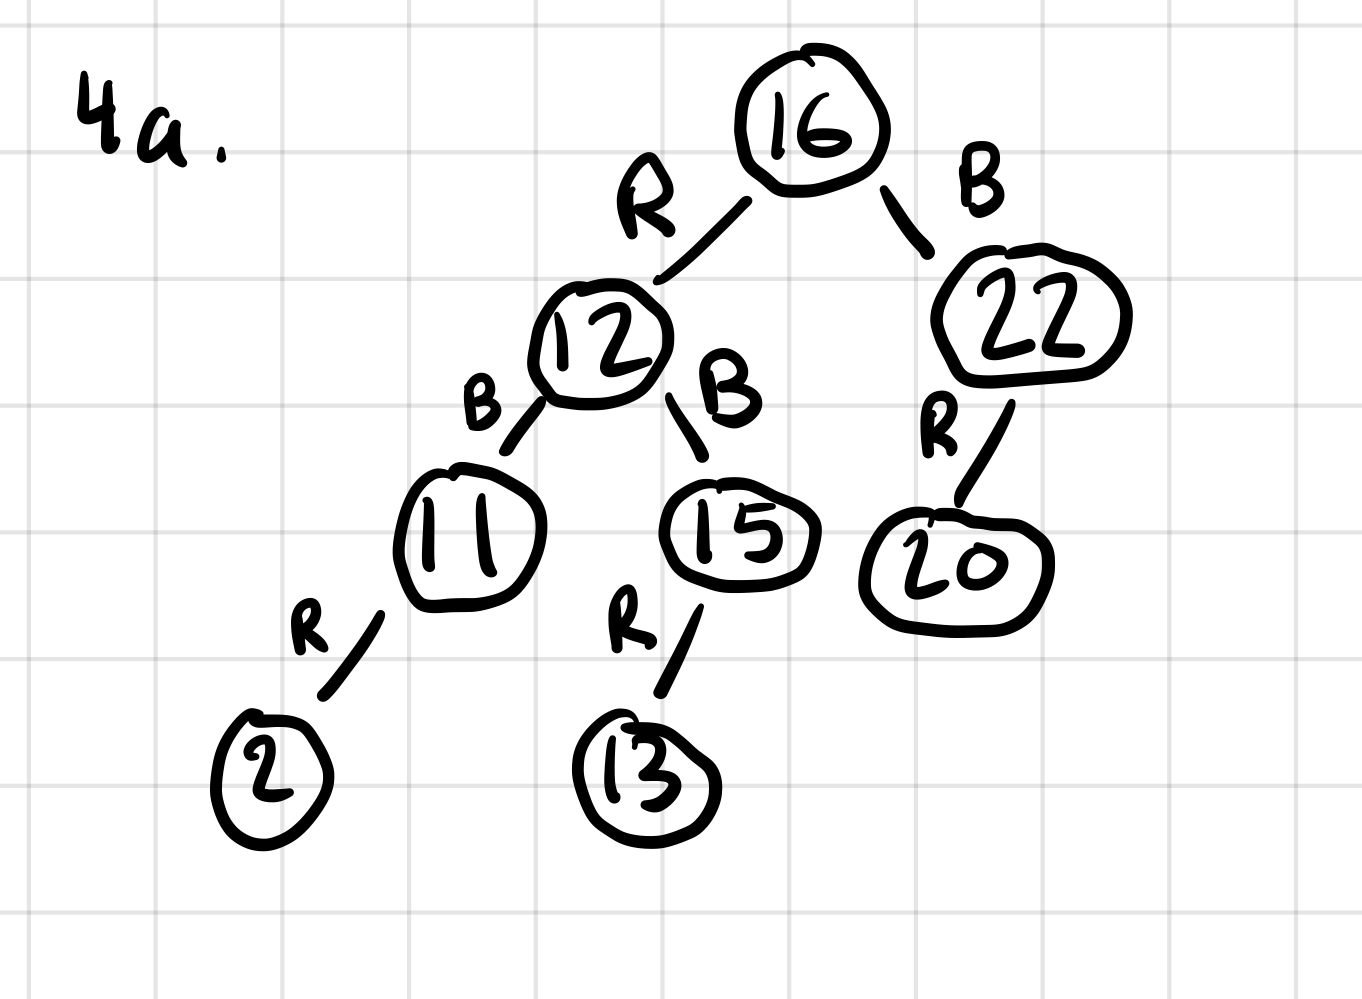 4a.
16
R B
12 22
B B R
11 15 20
R R
2 13